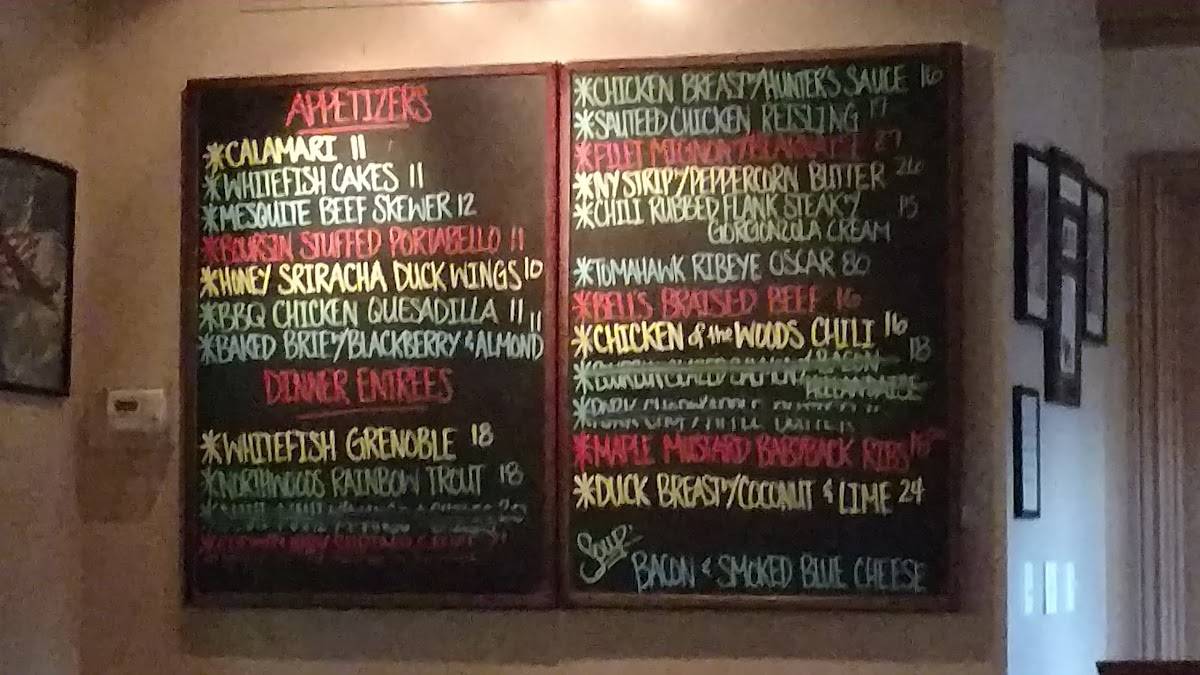 APPETIZERS
*CALAMARI 11
*WHITEFISH CAKES 11
*MESQUITE BEEF SKEWER 12
*BOURSIN STUFFED PORTABELLO 11
*HONEY SRIRACHA DUCK WINGS 10
*BBQ CHICKEN QUESADILLA 11
*BAKED BRIE W/BLACKBERRY & ALMOND 11
DINNER ENTREES
*WHITEFISH GRENOBLE 18
*NORTHWOODS RAINBOW TROUT 18
*CHICKEN BREAST W/HUNTER'S SAUCE 16
*SAUTEED CHICKEN REISLING 17
*FILET MIGNON 27
*NY STRIP W/PEPPERCORN BUTTER 26
*CHILI RUBBED FLANK STEAK W/ 15
GORGONZOLA CREAM
*TOMAHAWK RIBEYE OSCAR 80
*BELL'S BRAISED BEEF 16
*CHICKEN of the WOODS CHILI 16
BACON 18
*MAPLE MUSTARD BABYBACK RIBS
*DUCK BREAST W/COCONUT & LIME 24
SOUP
BACON & SMOKED BLUE CHEESE